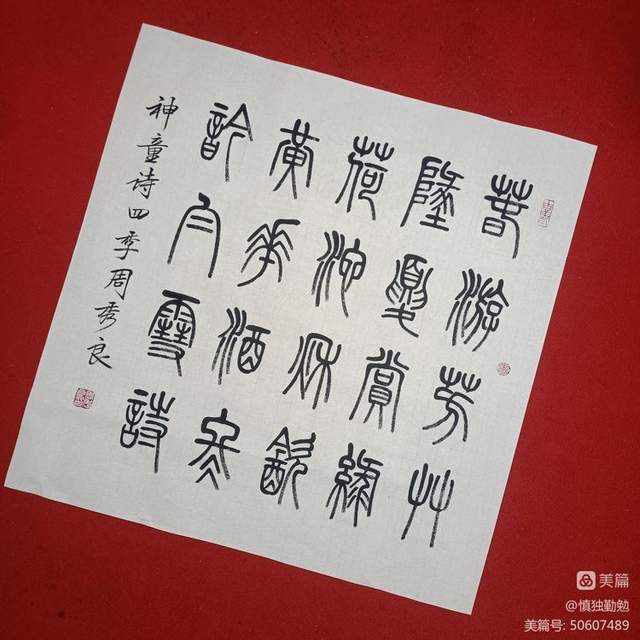 春游芳艸
墬夏賞綠
荷池秋飲
黄華酒冬
訡白雪詩
神童诗四季周秀良
美篇
@慎独勤勉
美篇号: 50607489